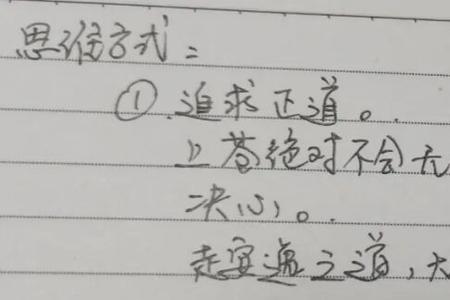 思维方式：
①.追求正道。
上苍绝对不会无
决心。
走宽通之道，大